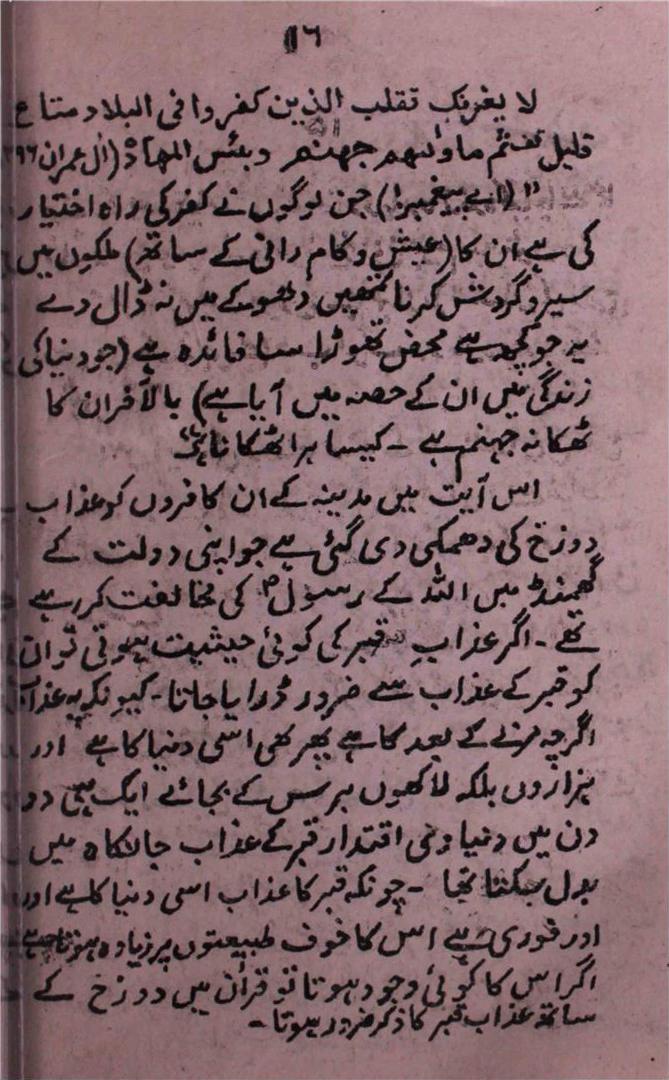 ۱۶
لا یغرنک تقلب الذین کفروا فی البلاد متاع
قلیل ثم ماوٰىهم جهنم وبئس المهاد (اٰل عمران ۱۹۶
"(اے پیغمبر!) جن لوگوں نے کفر کی راہ اختیار
کی ہے ان کا (عیش و کام رانی کے ساتھ) ملکوں میں
سیر و گردش کرنا تمھیں دھوکے میں نہ ڈال دے
یہ جو کچھ ہے محض تھوڑا سا فائدہ ہے (جو دنیا کی
زندگی میں ان کے حصہ میں آیا ہے) بالآخر ان کا
ٹھکانہ جہنم ہے ۔ کیسا برا ٹھکانا ہے"
اس آیت میں مدینہ کے ان کافروں کو عذاب
دوزخ کی دھمکی دی گئی ہے جو اپنی دولت کے
گھمنڈ میں اللہ کے رسولؐ کی مخالفت کر رہے
تھے ۔ اگر عذابِ قبر کی کوئی حیثیت ہوتی تو ان
کو قبر کے عذاب سے ضرور ڈرایا جاتا ۔ کیونکہ یہ عذاب
اگرچہ مرنے کے بعد کا ہے پھر بھی اسی دنیا کا ہے اور
ہزاروں بلکہ لاکھوں برس کے بجائے ایک ہی دو
دن میں دنیاوی اقتدار قبر کے عذاب جانکاہ میں
بدل سکتا تھا ۔ چونکہ قبر کا عذاب اسی دنیا کا ہے اور
اور فوری ہے اس کا خوف طبیعتوں پر زیادہ ہوتا ہے
اگر اس کا کوئی وجود ہوتا تو قرآن میں دوزخ کے
ساتھ عذاب قبر کا ذکر ضرور ہوتا ۔